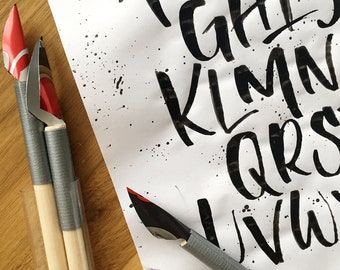 GHIJ
KLMN
QRS
UVW